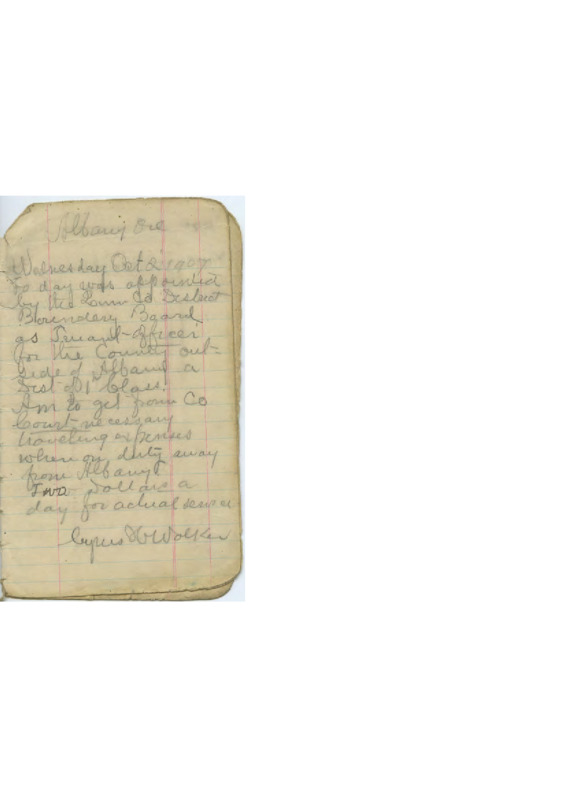 Albany Ore
Wednesday Oct 2 1907
To day was appointed
by the Linn Co District
Boundery Board
as Truant-Officer
for the County out-
side of Albany a
Dist of 1st Class.
Am to get from Co
Court necessary
traveling expenses
when on duty away
from Albany &
Two Dollars a
day for actual service
Cyrus H Walker